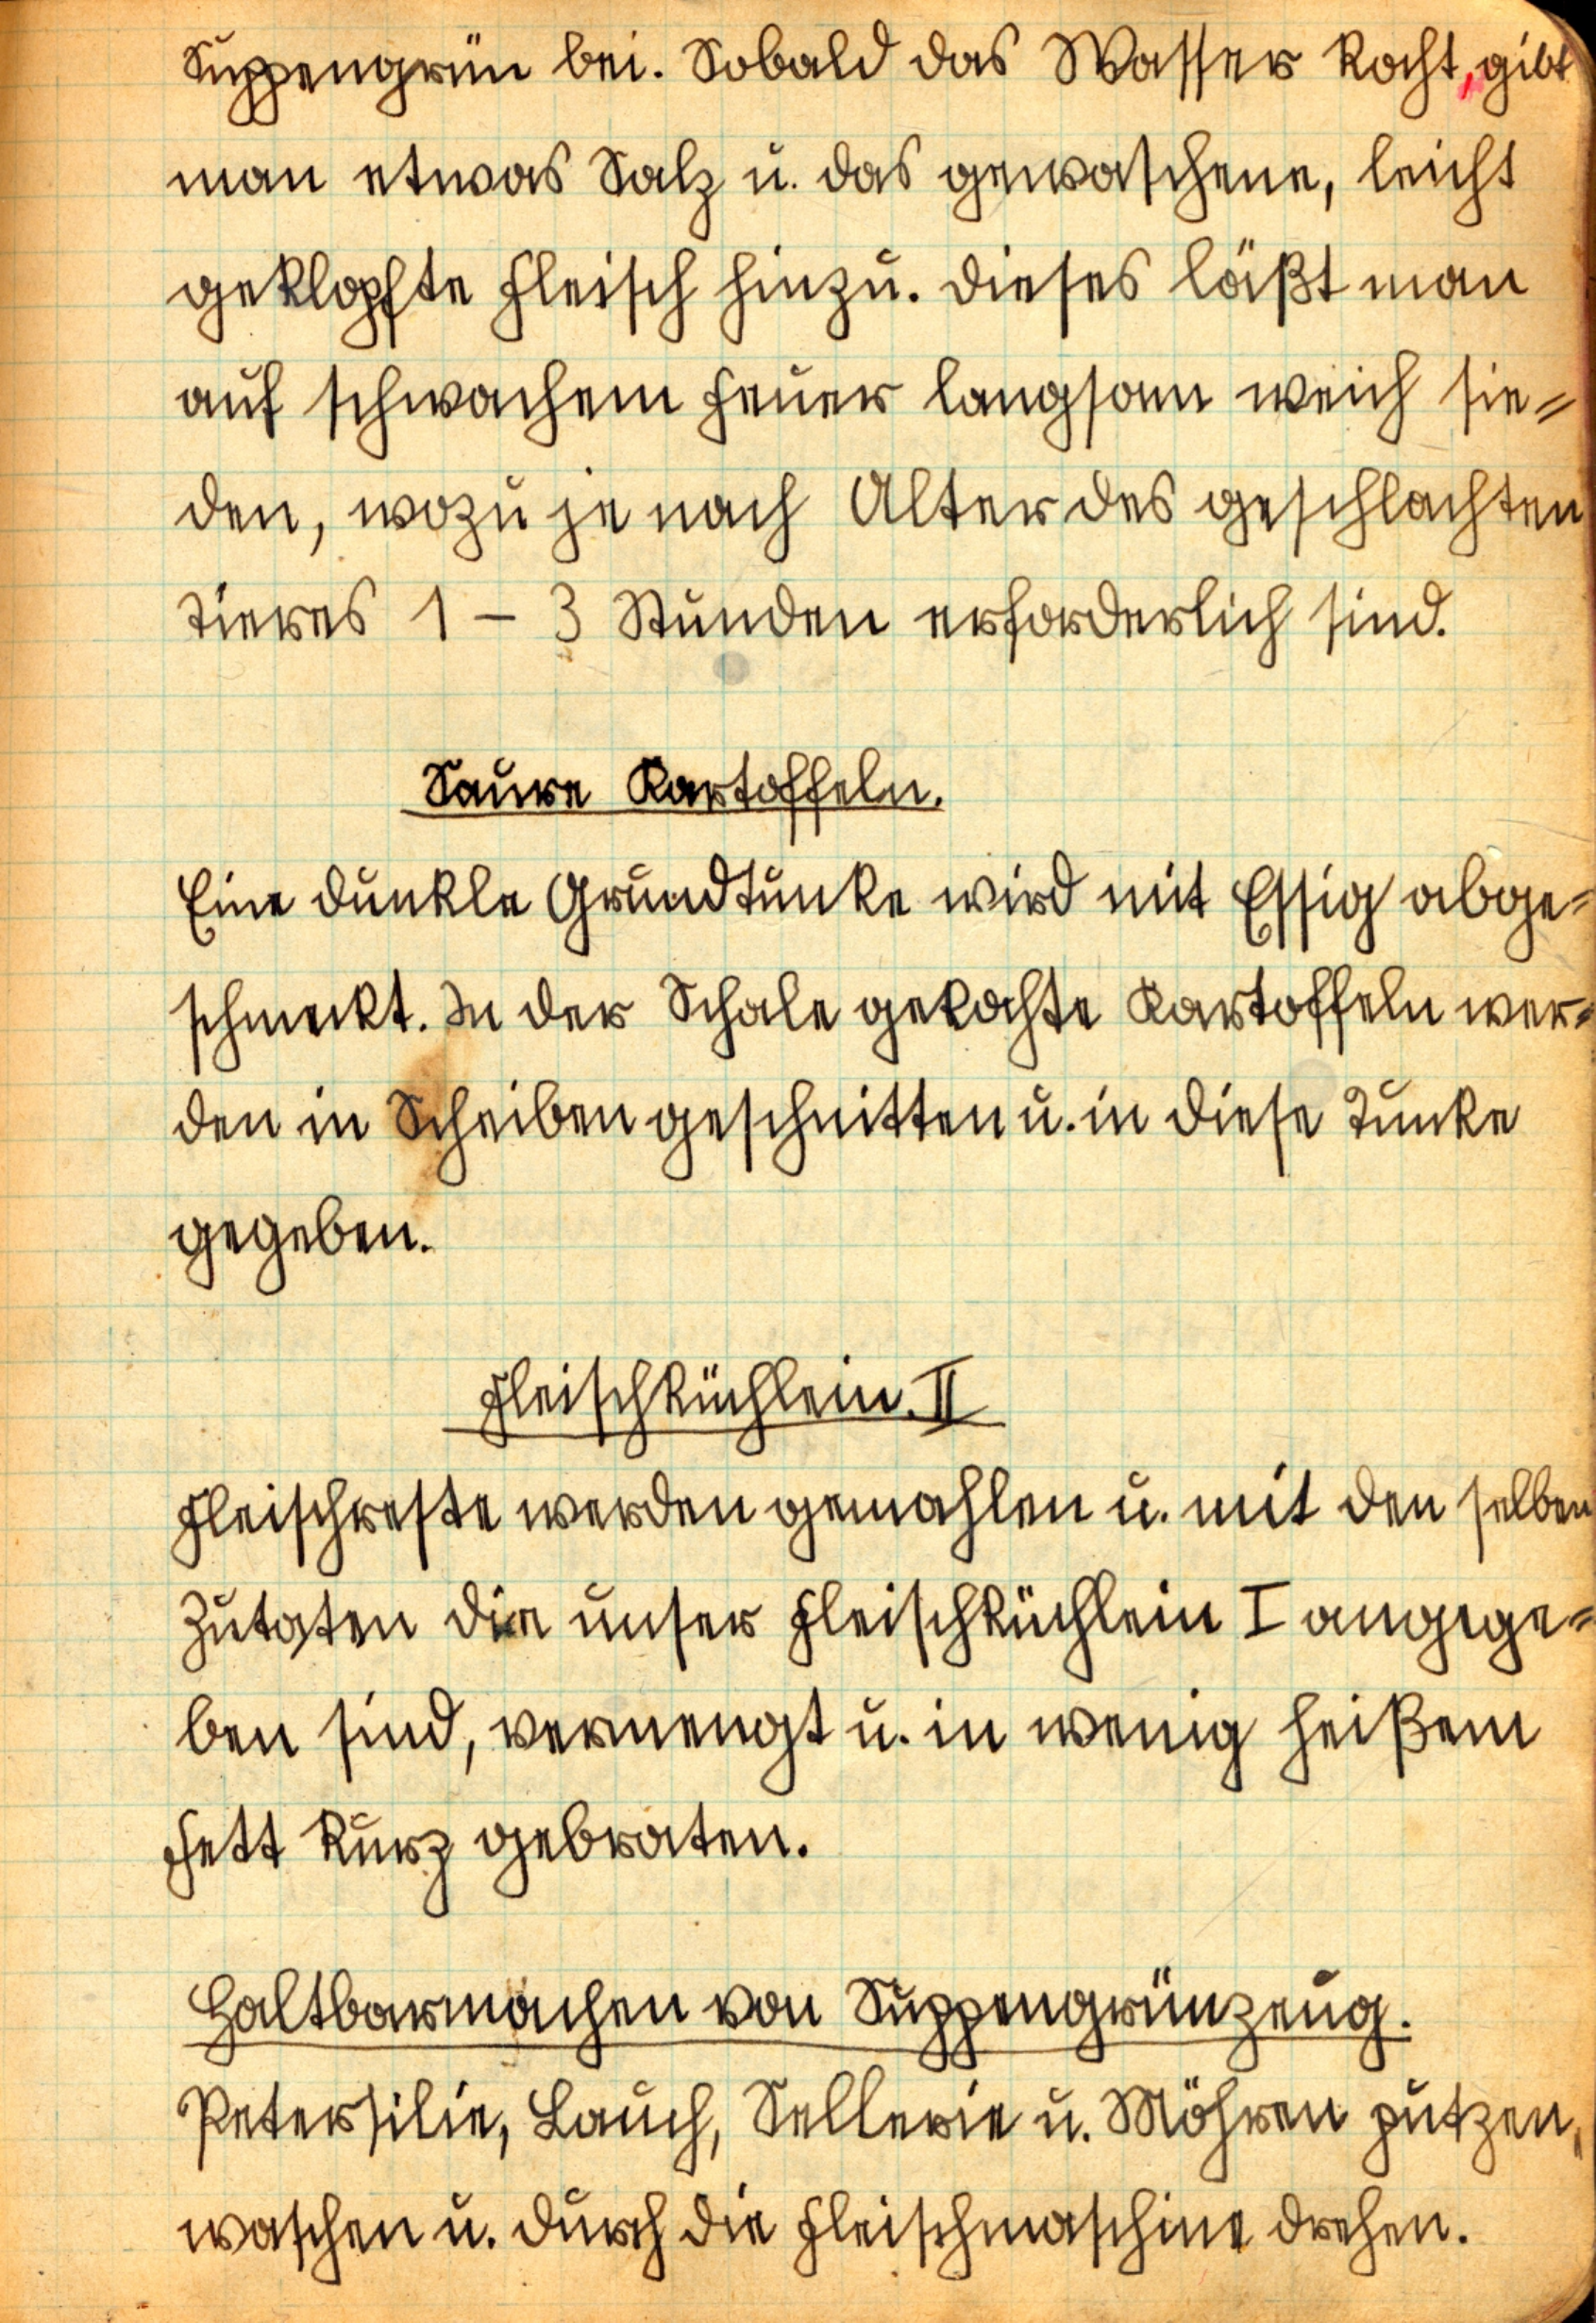 Suppengrün bei. Sobald das Wasser kocht, gibt
man etwas Salz u. das gewaschene, leicht
geklopfte Fleisch hinzu. Dieses läßt man
auf schwachem Feuer langsam weich sie=
den, wozu je nach Alter des geschlachten
Tieres 1 – 3 Stunden erforderlich sind.
Saure Kartoffeln.
Eine dunkle Grundtunke wird mit Essig abge=
schmeckt. In der Schale gekochte Kartoffeln wer=
den in Scheiben geschnitten u. in diese Tunke
gegeben.
Fleischküchlein. II
Fleischreste werden gemahlen u. mit den selben
Zutaten die unser Fleischküchlein I angege=
ben sind, vermengt u. in wenig heißem
Fett kurz gebraten.
Haltbarmachen von Suppengrünzeug.
Petersilie, Lauch, Sellerie u. Möhren putzen,
waschen u. durch die Fleischmaschine drehen.